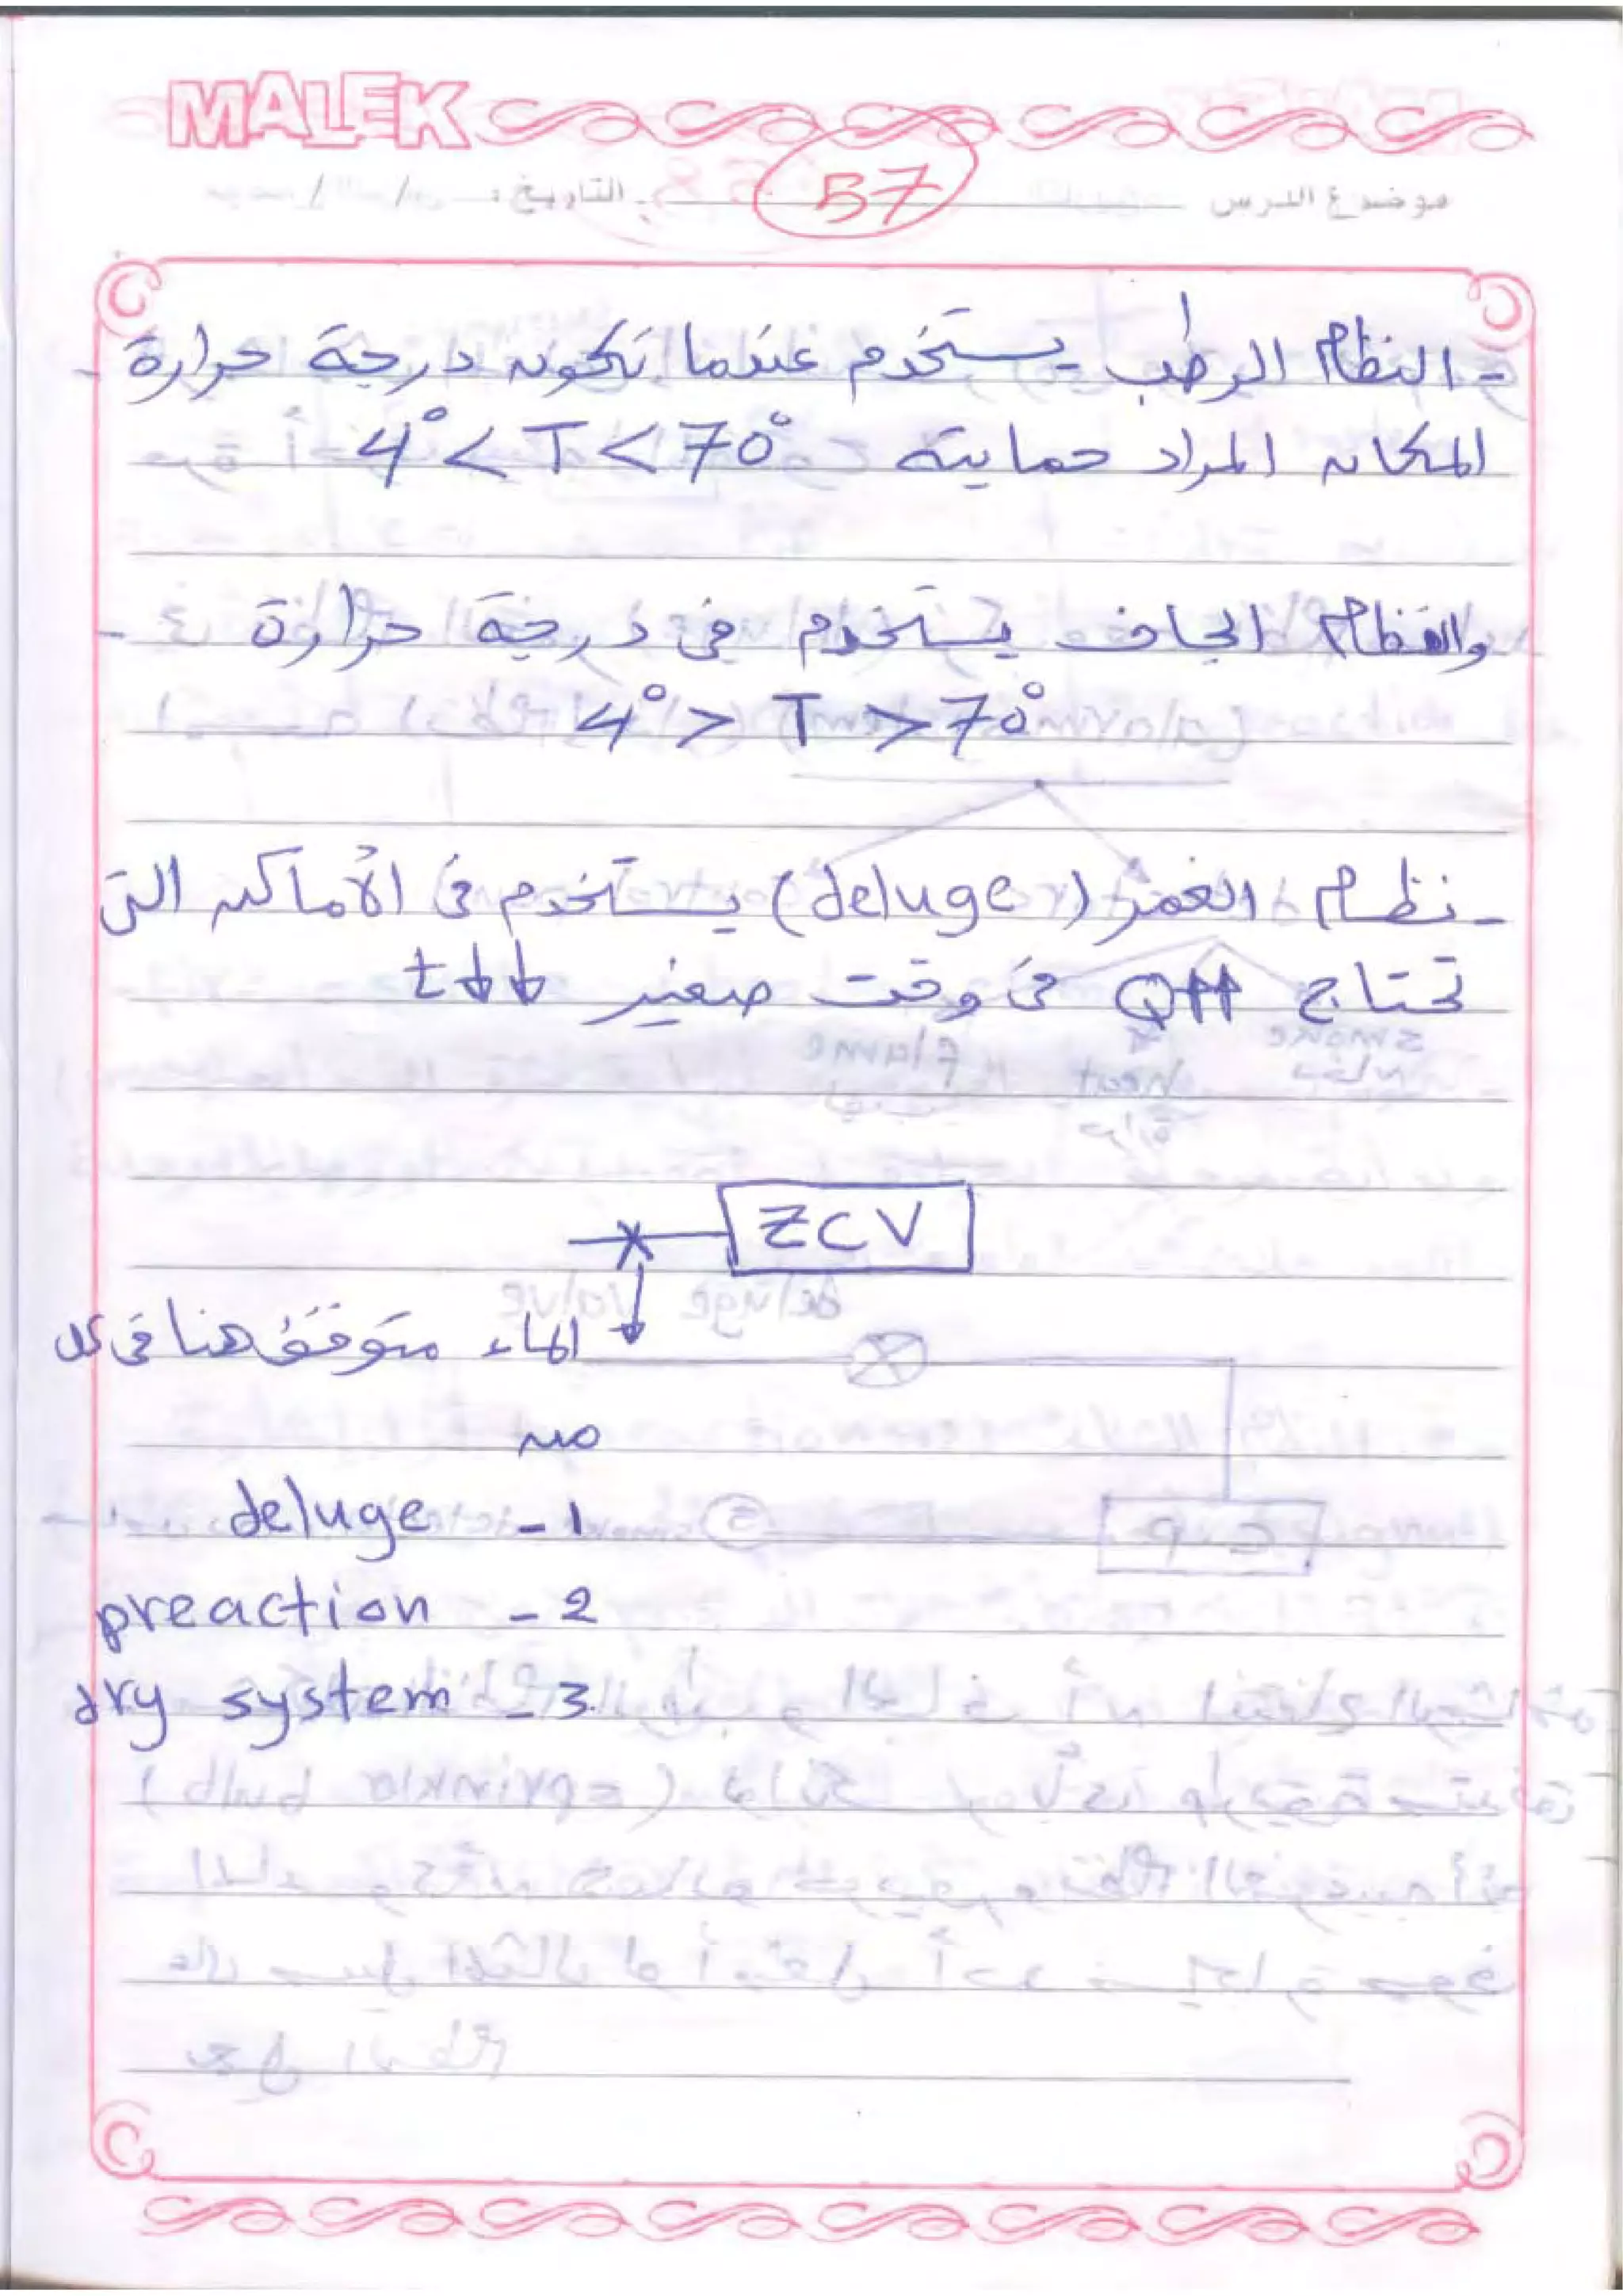 MALEK
موضوع الدرس التاريخ: / /
57
- النظام الرطب يستخدم عندما تكون درجة حرارة
المكان المراد حمايته 4° < T < 70°
والنظام الجاف يستخدم فى درجة حرارة
4° > T > 70°
- نظام الغمر (deluge) يستخدم فى الأماكن التى
تحتاج Q↑↑ فى وقت صغير t↓↓
ZCV
الماء متوقف هنا فى كل
من
1 - deluge
2 - preaction
3 - dry system